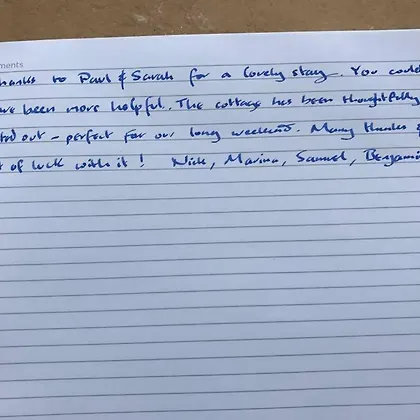 ments
hanks to Paul & Sarah for a lovely stay. You could
ve been more helpful. The cottage has been thoughtfully
ted out - perfect for our long weekend. Many thanks &
t of luck with it! Nick, Marina, Samuel, Benjami